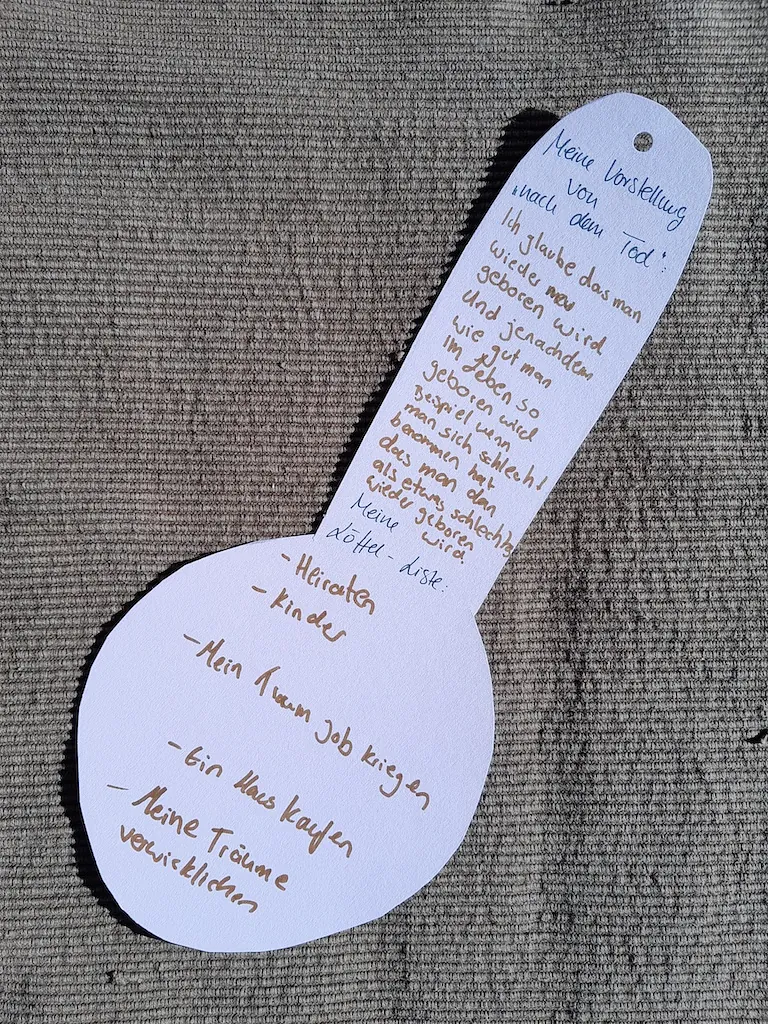 Meine Vorstellung
von
"nach dem Tod":
Ich glaube das man
wieder neu
geboren wird
und jenachdem
wie gut man
im Leben so
geboren wird
Bespiel wenn
man sich schlecht
benommen hat
das man dan
als etwas schlechtes
wieder geboren
wird.
Meine
Löffel-Liste:
- Heiraten
- Kinder
- Mein Traum job kriegen
- Ein Haus kaufen
- Meine Träume
verwicklichen